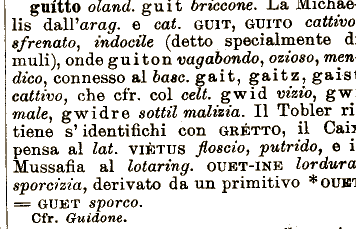 guítto oland. guit briccone. La Michae
lis dall'arag. e cat. GUIT, GUITO cattivo
sfrenato, indocile (detto specialmente d
muli), onde guiton vagabondo, ozioso, men
dico, connesso al basc. gait, gaitz, gais
cattivo, che cfr. col celt. gwid vizio, gw
male, gwidre sottil malizia. Il Tobler ri
tiene s'identifichi con GRÉTTO, il Cain
pensa al lat. VIÈTUS floscio, putrido, e i
Mussafia al lotaring. OUET-INE lordura
sporcizia, derivato da un primitivo *OUET
= GUET sporco.
Cfr. Guidone.